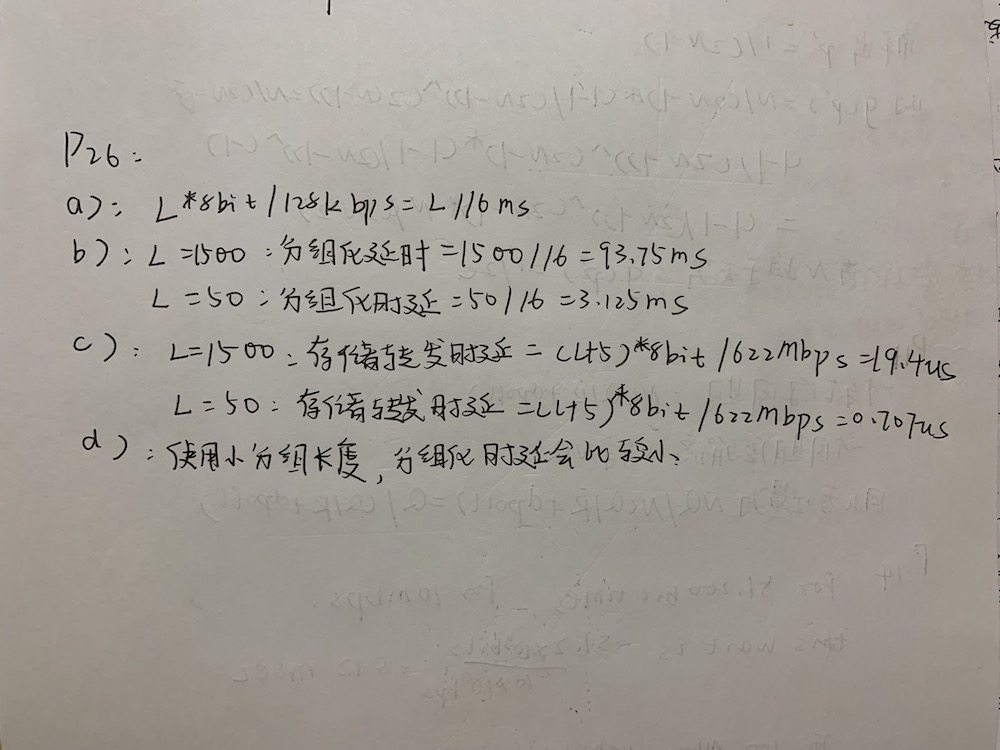 P26:
a): L*8bit/128kbps=L/16ms
b): L=1500:分组化延时=1500/16=93.75ms
L=50:分组化时延=50/16=3.125ms
c): L=1500:存储转发时延=(L+5)*8bit/622Mbps=19.4us
L=50:存储转发时延=(L+5)*8bit/622Mbps=0.707us
d):使用小分组长度,分组化时延会比较小.